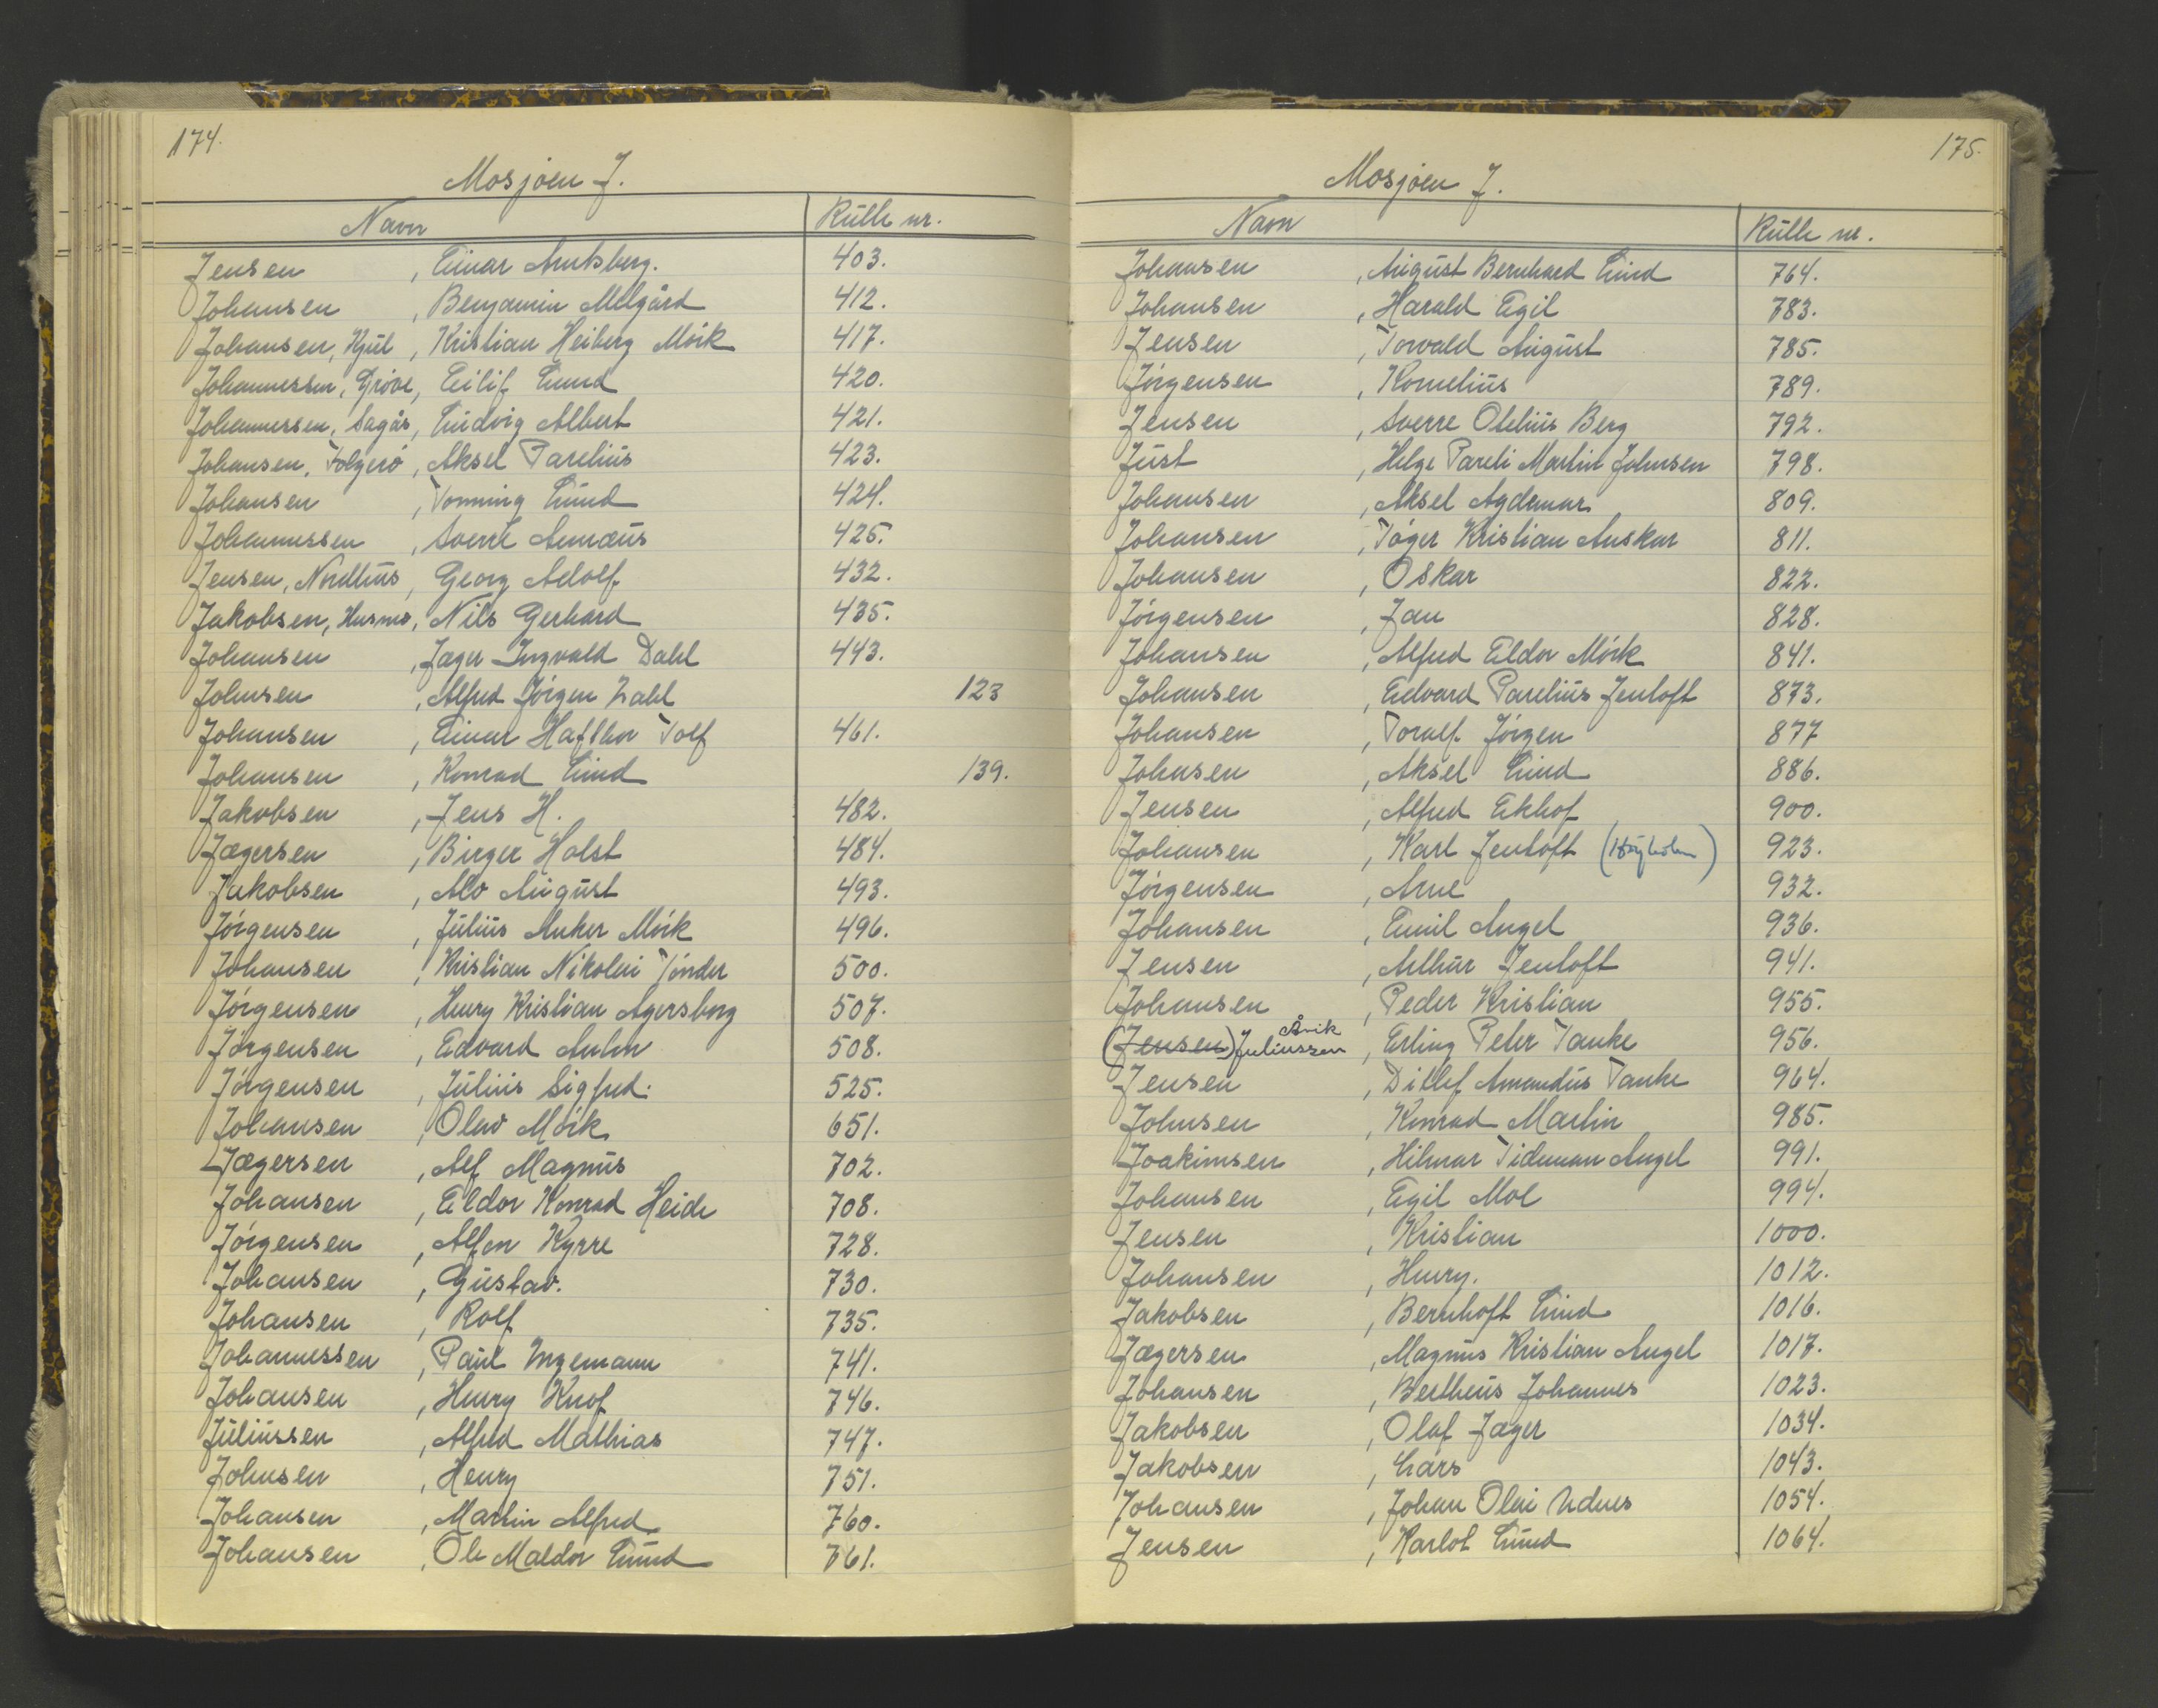 174.
Mosjøen J.
Navn Rulle nr.
Jensen , Einar Arntsberg. 403.
Johansen , Benjamin Melgård 412.
Johansen, Kjul , Kristian Heiberg Mørk 417.
Johannessen, Grøve, Eilif Lund 420.
Johannessen, Sagås, Ludvig Albert 421.
Johansen, Folgerø , Aksel Parelius 423.
Johansen , Tonning Lund 424.
Johannessen , Sverre 425.
Jensen, Nordhus , Georg Adolf 432.
Jakobsen, Husmo, Nils Gerhard 435.
Johansen , Jæger Ingvald Dahl 443.
Johnsen , Alfred Jørgen Zahl 123
Johansen , Einar Hafthor Tolf 461.
Johansen , Konrad Lind 139.
Jakobsen , Jens H. 482.
Jægersen , Birger Holst 484.
Jakobsen , Alo August 493.
Jørgensen , Julius Anker Mørk 496.
Johansen , Kristian Nikolai Tønder 500.
Jørgensen , Henry Kristian Agersborg 507.
Jørgensen , Edvard Anton 508.
Jørgensen , Julius Sigfred. 525.
Johansen , Olav Mørk 651.
Jægersen , Alf Magnus 702.
Johansen , Eldor Konrad Heide 708.
Jørgensen , Alfon Kyrre 728.
Johansen , Gustav. 730.
Johansen , Rolf 735.
Johannessen , Paul Ingemann 741.
Johansen , Henry Knof 746.
Juliussen , Alfred Mathias 747.
Johnsen , Henry 751.
Johansen , Martin Alfred 760.
Johansen , Ole Maldor Lund 761.
175.
Mosjøen J.
Navn Rulle nr.
Johansen , August Bernhard Lind 764.
Johansen , Harald Egil 783.
Jensen , Torvald August 785.
Jørgensen , Kornelius 789.
Jensen , Sverre Otelius Berg 792.
Just , Helge Pareli Martin Johnsen 798.
Johansen , Aksel Agdemar 809.
Johansen , Tøger Kristian Anskar 811.
Johansen , Oskar 822.
Jørgensen , Jan 828.
Johansen , Alfred Eldor Mørk 841.
Johansen , Edvard Parelius Jentoft 873.
Johansen , Toralf Jørgen 877
Johnsen , Aksel Lind 886.
Jensen , Alfred Ekhof 900.
Johansen , Karl Jentoft (Høyholm) 923.
Jørgensen , Arne 932.
Johansen , Emil Angel 936.
Jensen , Arthur Jentoft 941.
Johansen , Peder Kristian 955.
Åvik
(Jensen) Juliussen , Erling Peter Tanke 956.
Jensen , Ditlef Amandus Tanke 964.
Johnsen , Konrad Martin 985.
Joakimsen , Hilmar Tideman Angel 991.
Johansen , Egil Moe 994.
Jensen , Kristian 1000.
Johansen , Henry. 1012.
Jakobsen , Bernhoft Lind 1016.
Jægersen , Magnus Kristian Angel 1017.
Johansen , Bertheus Johannes 1023.
Jakobsen , Olaf Jæger 1034.
Jakobsen , Lars 1043.
Johansen , Johan Olai Udnes 1054.
Jensen , Karlot Lund 1064.